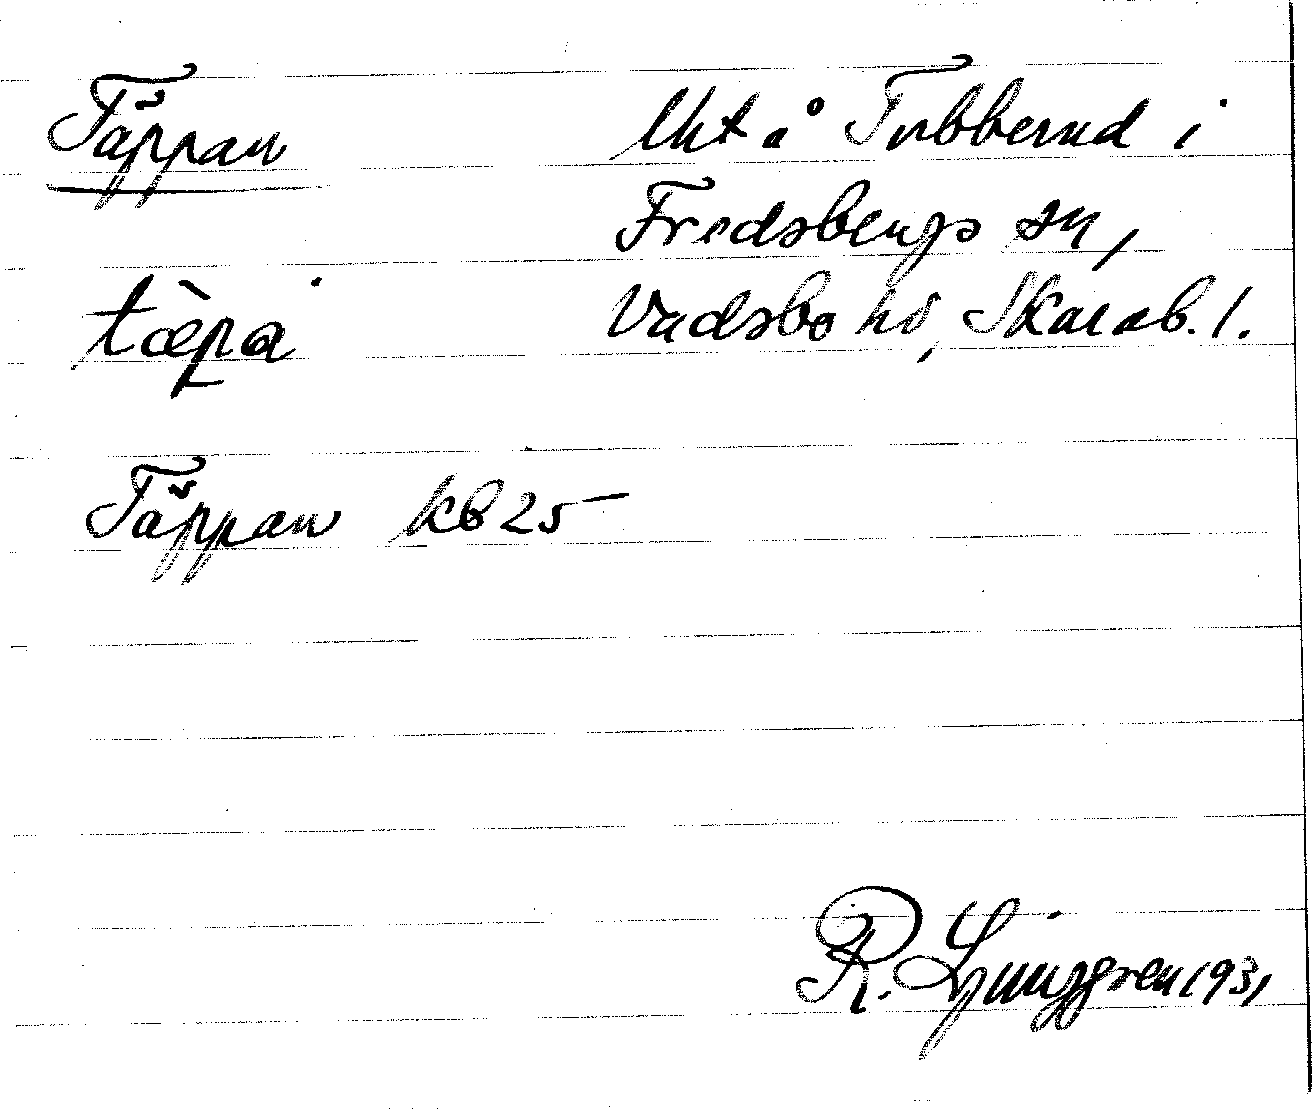 Täppan
Uht å Tubberud i
Fredsbergs sn,
Vadsbo hd, Skarab. l.
tæ̀pa
Täppan kb 25
R. Ljunggren 1931